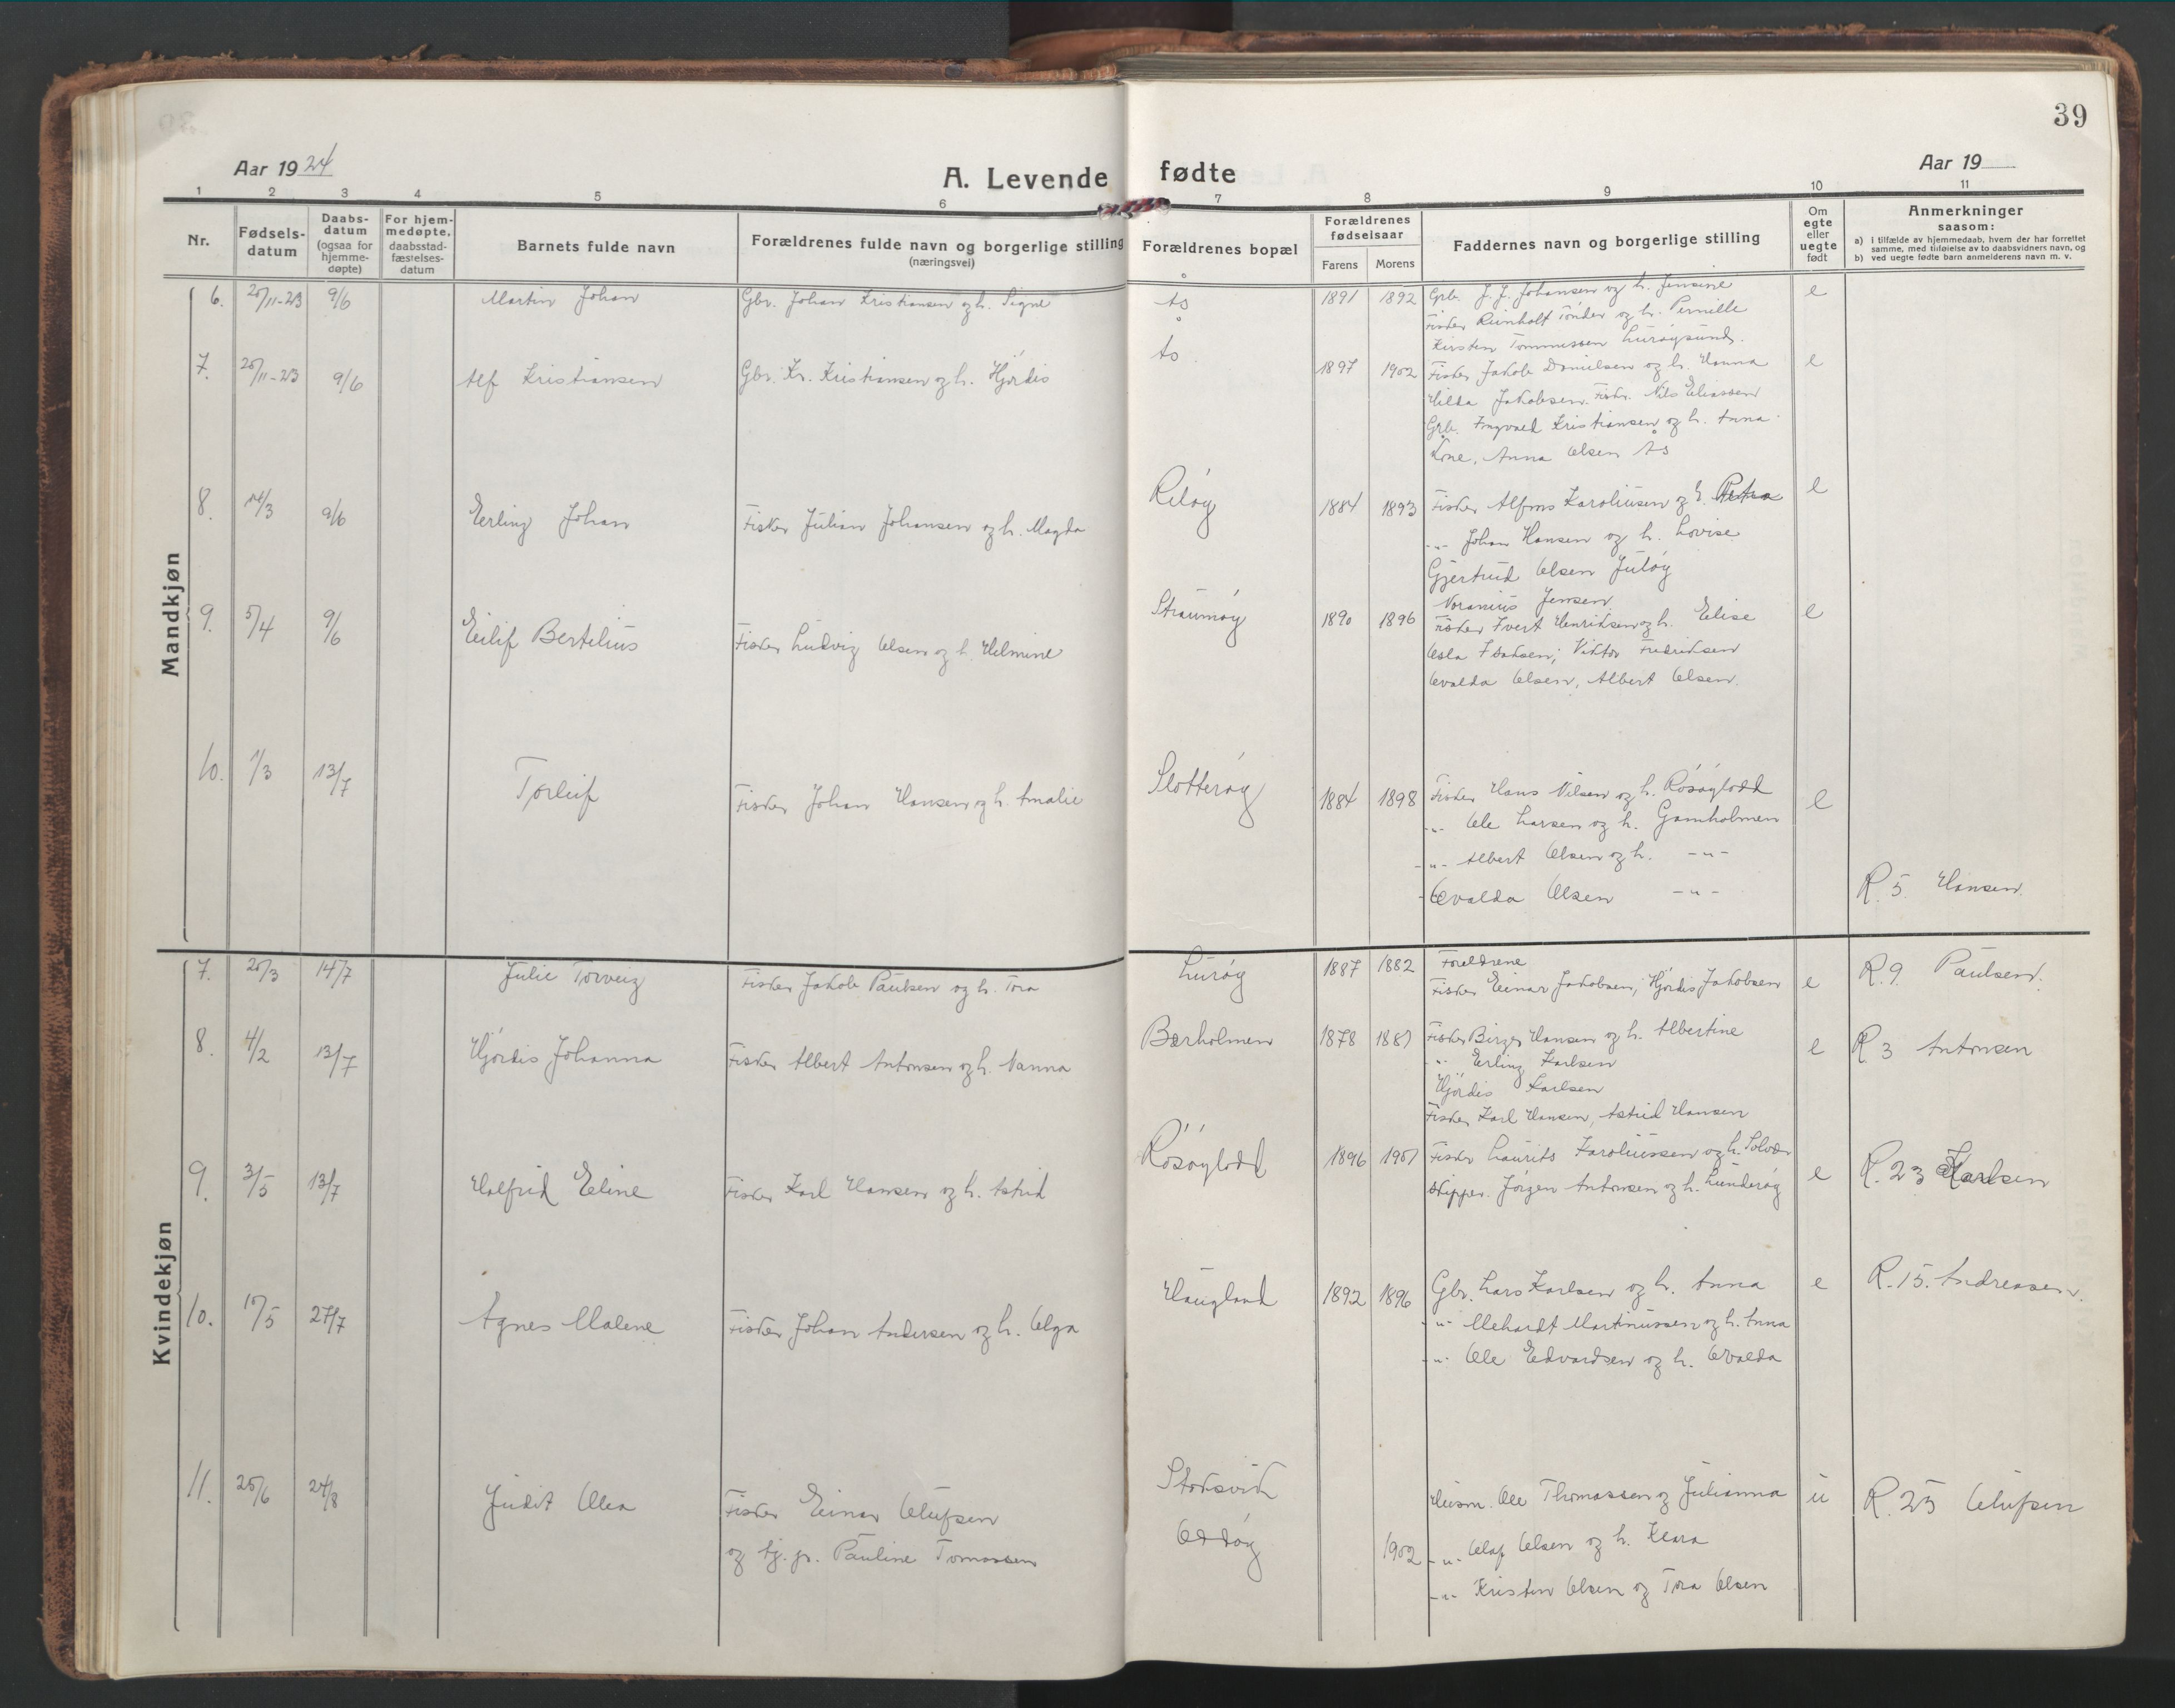 39
Aar 1924
A. Levende fødte
Aar 19
1 2 3 4 5 6 7 8 9 10 11
Nr.
Fødsels-datum
Daabs-datum (ogsaa for hjemme-døpte)
For hjem-medøpte, daabsstad-fæstelses-datum
Barnets fulde navn
Forældrenes fulde navn og borgerlige stilling (næringsvei)
Forældrenes bopæl
Forældrenes fødselsaar
Farens Morens
Faddernes navn og borgerlige stilling
Om egte eller uegte født
Anmerkninger saasom:
a) i tilfælde av hjemmedaab, hvem der har forrettet samme, med tilføielse av to daabsvidners navn, og
b) ved uegte fødte barn anmelderens navn m. v.
Mandkjøn
6. 20/11-23 9/6 Martin Johan Gbr. Johan Kristiansen og h. Signe Ås 1891 1892 Grb. J. J. Johansen og h. Jensine e
Fisker Reinholt Tönder og h. Pernille
Kirsten Tommessen Luröysund.
7. 20/11-23 9/6 Alf Kristiansen Gbr. Kr. Kristiansen og h. Hjördis Ås 1897 1902 Fisker Jakob Danielsen og h. Hanna e
Hilda Jakobsen. Fisker Nils Eliassen
Grb. Ingvald Kristiansen og h. Anna
Lone, Anna Olsen Ås
8. 14/3 9/6 Erling Johan Fisker Julian Johansen og h. Magda Relöy 1884 1893 Fisker Alfons Karoliusen og h. Petra e
-"- Johan Hansen og h. Lovise
Gjertrud Olsen Julöy
9. 5/4 9/6 Eilif Bertelius Fisker Ludvig Olsen og h. Helmine Straumöy 1890 1896 Noranius Jensen
Fisker Ivert Henriksen og h. Elise e
Asla Isaksen; Viktor Fredriksen
Ovalda Olsen, Albert Olsen.
10. 1/3 13/7 Torleif Fisker Johan Hansen og h. Amalie Slotteröy 1884 1898 Fisker Hans Nilsen og h. Rösöylodd e
-"- Ole Larsen og h. Gamholmen
-"- Albert Olsen og h. -"-
Ovalda Olsen -"- R. 5 Hansen.
Kvindekjøn
7. 20/3 14/7 Julie Torveig Fisker Jakob Paulsen og h. Tora Luröy 1887 1882 Foreldrene
Fisker Einar Jakobsen, Hjördis Jakobsen e R. 9 Paulsen.
8. 4/2 13/7 Hjördis Johanna Fisker Albert Antonsen og h. Nanna Bærholmen 1878 1887 Fisker Birger Hansen og h. Albertine e R 3 Antonsen
-"- Erling Karlsen
Hjördis Karlsen
Fisker Karl Hansen, Astrid Hansen
9. 3/5 13/7 Halfrid Eline Fisker Karl Hansen og h. Astrid Rösöylodd 1896 1901 Fisker Laurits Karoliussen og h. Solvär e R. 23 Karlsen
Skipper Jörgen Antonsen og h. Lunderöy
10. 10/5 27/7 Agnes Malene Fisker Johan Andersen og h. Olga Haugland 1892 1896 Gbr. Lars Karlsen og h. Anna e R. 15. Andreasen.
-"- Mehardt Martinussen og h. Anna
-"- Ole Edvardsen og h. Ovalda
11. 25/6 24/8 Judit Olea Fisker Einar Olufsen Stoksvik Husm. Ole Thomassen og Julianna u R. 25 Olufsen
og tj. p. Pauline Tomassen Oddöy 1902 -"- Olaf Olsen og h. Klara
-"- Kristen Olsen og Tora Olsen